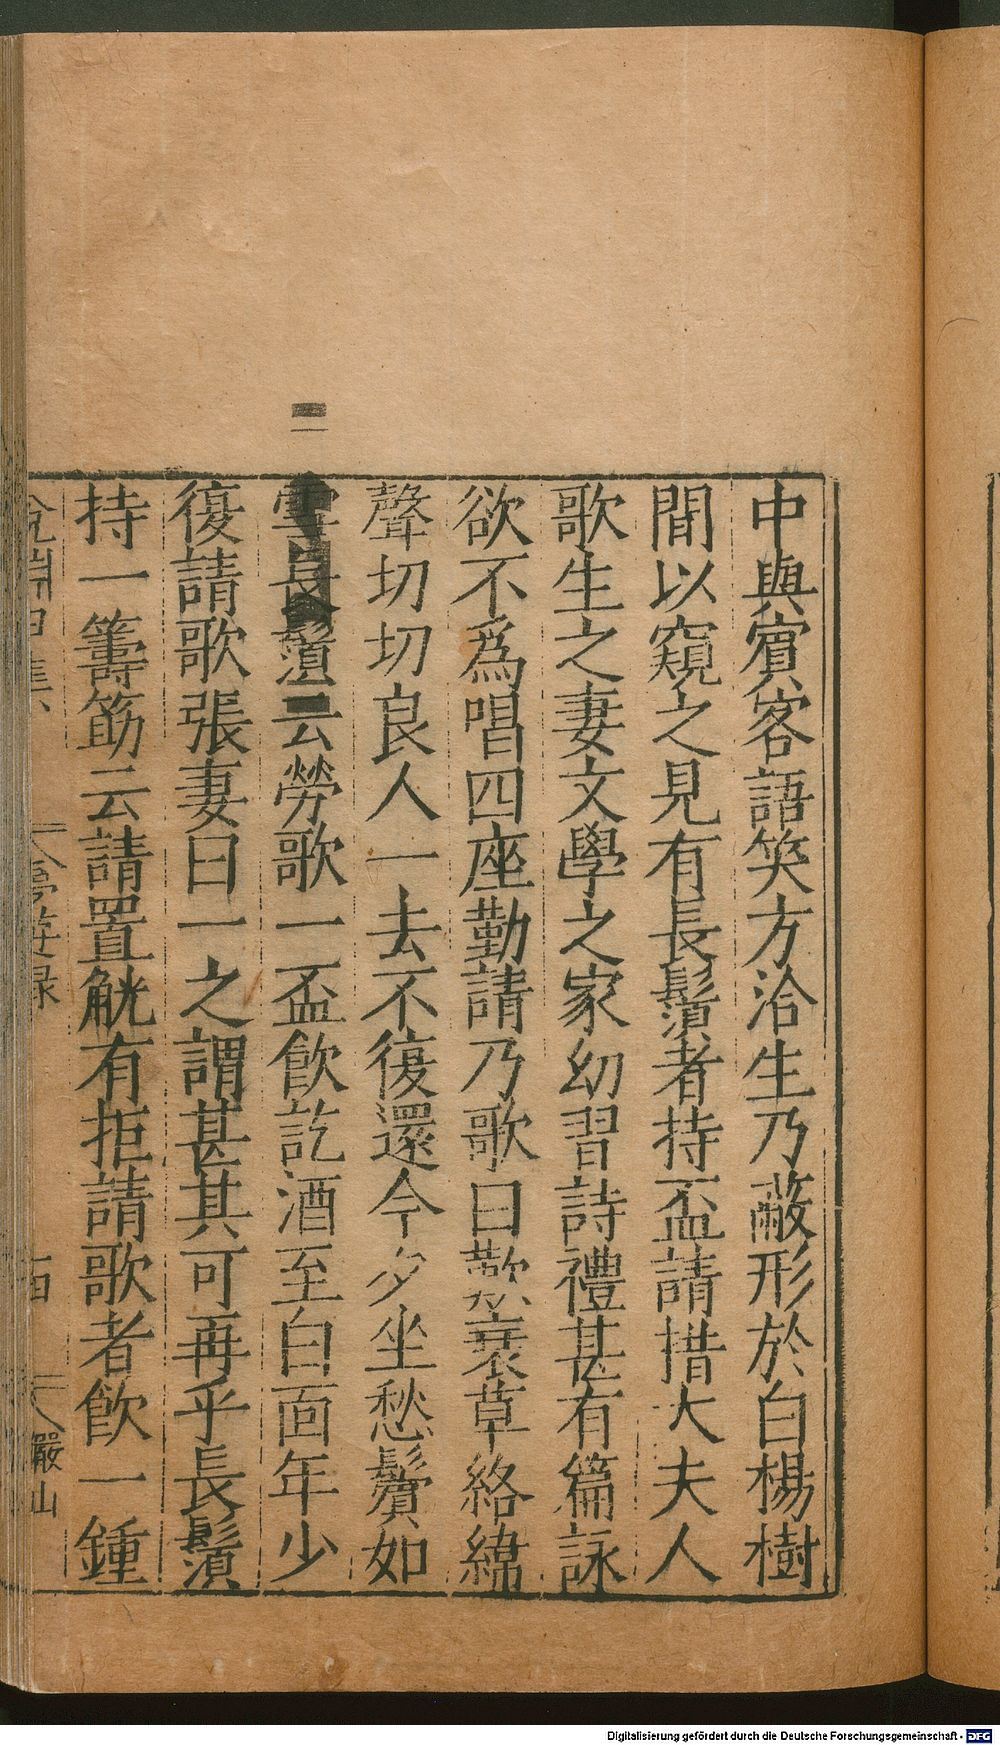 中與賓客語笑方洽生乃蔽形於白楊樹
間以窺之見有長鬚者持盃請措大夫人
歌生之妻文學之家幼習詩禮甚有篇詠
欲不爲唱四座勤請乃歌曰歎衰草絡緯
聲切切良人一去不復還今夕坐愁鬢如
雪長鬚云勞歌一盃飲訖酒至白面年少
復請歌張妻曰一之謂甚其可再乎長鬚
持一籌筯云請置觥有拒請歌者飲一鍾
Digitalisierung gefördert durch die Deutsche Forschungsgemeinschaft - DFG